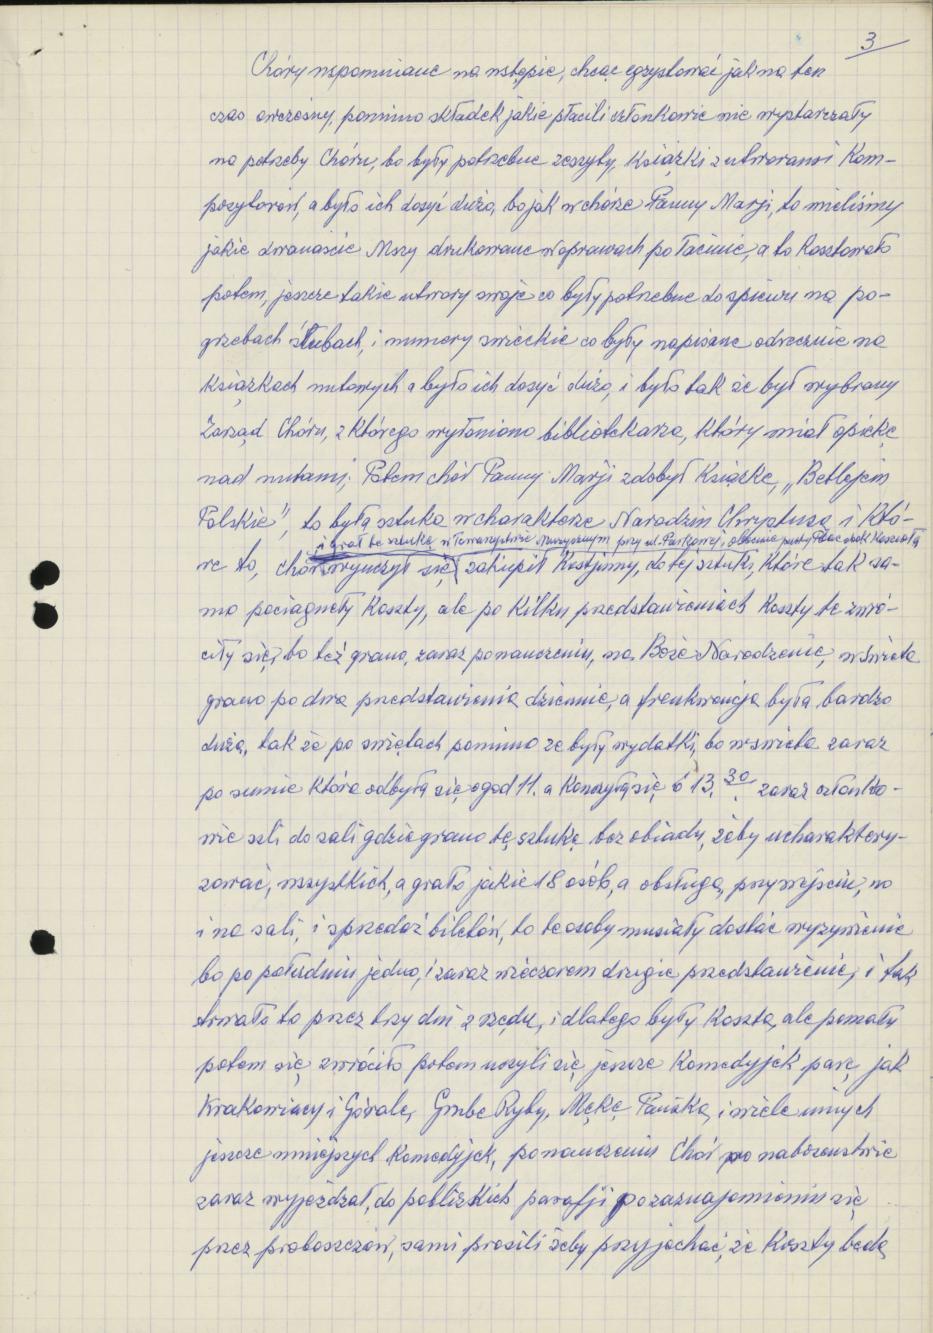 3
Chóry wspomniane na wstępie, chcąc egzystować jak na ten
czas owczesny, pomimo składek jakie płacili członkowie nie wystarczały
na potrzeby Chóru, bo były potrzebne zeszyty, książki z utworami Kom-
pozytorów, a było ich dosyć dużo, bo jak w chórze Panny Marji, to mieliśmy
jakie dwanaście Mszy drukowane w oprawach po łacinie, a to kosztowało
potem, jeszcze takie utwory swoje co były potrzebne do śpiewu na po-
grzebach ślubach, i numery świeckie co były napisane odręcznie na
książkach nutowych a było ich dosyć dużo, i było tak że był wybrany
Zarząd Chóru, z którego wyłoniono bibliotekarza, który miał opiekę
nad nutami, Potem chór Panny Marji zdobył Książkę, „Betlejem
Polskie”, to była sztuka w charakterze Narodzin Chrystusa i Któ-
i grał tę sztukę w Towarzystwie Muzycznym przy ul. Parkowej, obecnie pusty Plac obok Kościoła
re to, chór wyuczył się, zakupił Kostjumy, do tej sztuki, Które tak sa-
mo pociągnęły Koszty, ale po kilku przedstawieniach Koszty te zwró-
ciły się, bo też grano, zaraz po nauczeniu, na Boże Narodzenie, w święta
grano po dwa przedstawienia dziennie, a frenkwencja była bardzo
duża, tak że po świętach pomimo że były wydatki, bo w święta zaraz
po sumie która odbyła się o god 11. a Konczyła się o 13.30 zaraz członko-
wie szli do sali gdzie grano tę sztukę bez obiadu, żeby ucharaktery-
zować, wszystkich, a grało jakie 18 osób, a obsługa, przy wejściu, no
i na sali, i sprzedaż biletów, to te osoby musiały dostać wyżywienie
bo po południu jedno, i zaraz wieczorem drugie przedstawienie, i tak
trwało to przez trzy dni z rzędu, i dlatego były Koszta, ale pomału
potem się zwróciło potem uczyli się jeszcze Komedyjek parę, jak
Krakowiacy i Górale, Grube Ryby, Mękę Pańską, i wiele innych
jeszcze mniejszych komedyjek, po nauczeniu Chór po nabożeństwie
zaraz wyjeżdżał, do pobliskich parafji po zaznajomieniu się
przez proboszczów, sami prosili żeby przyjechać, że Koszty będą